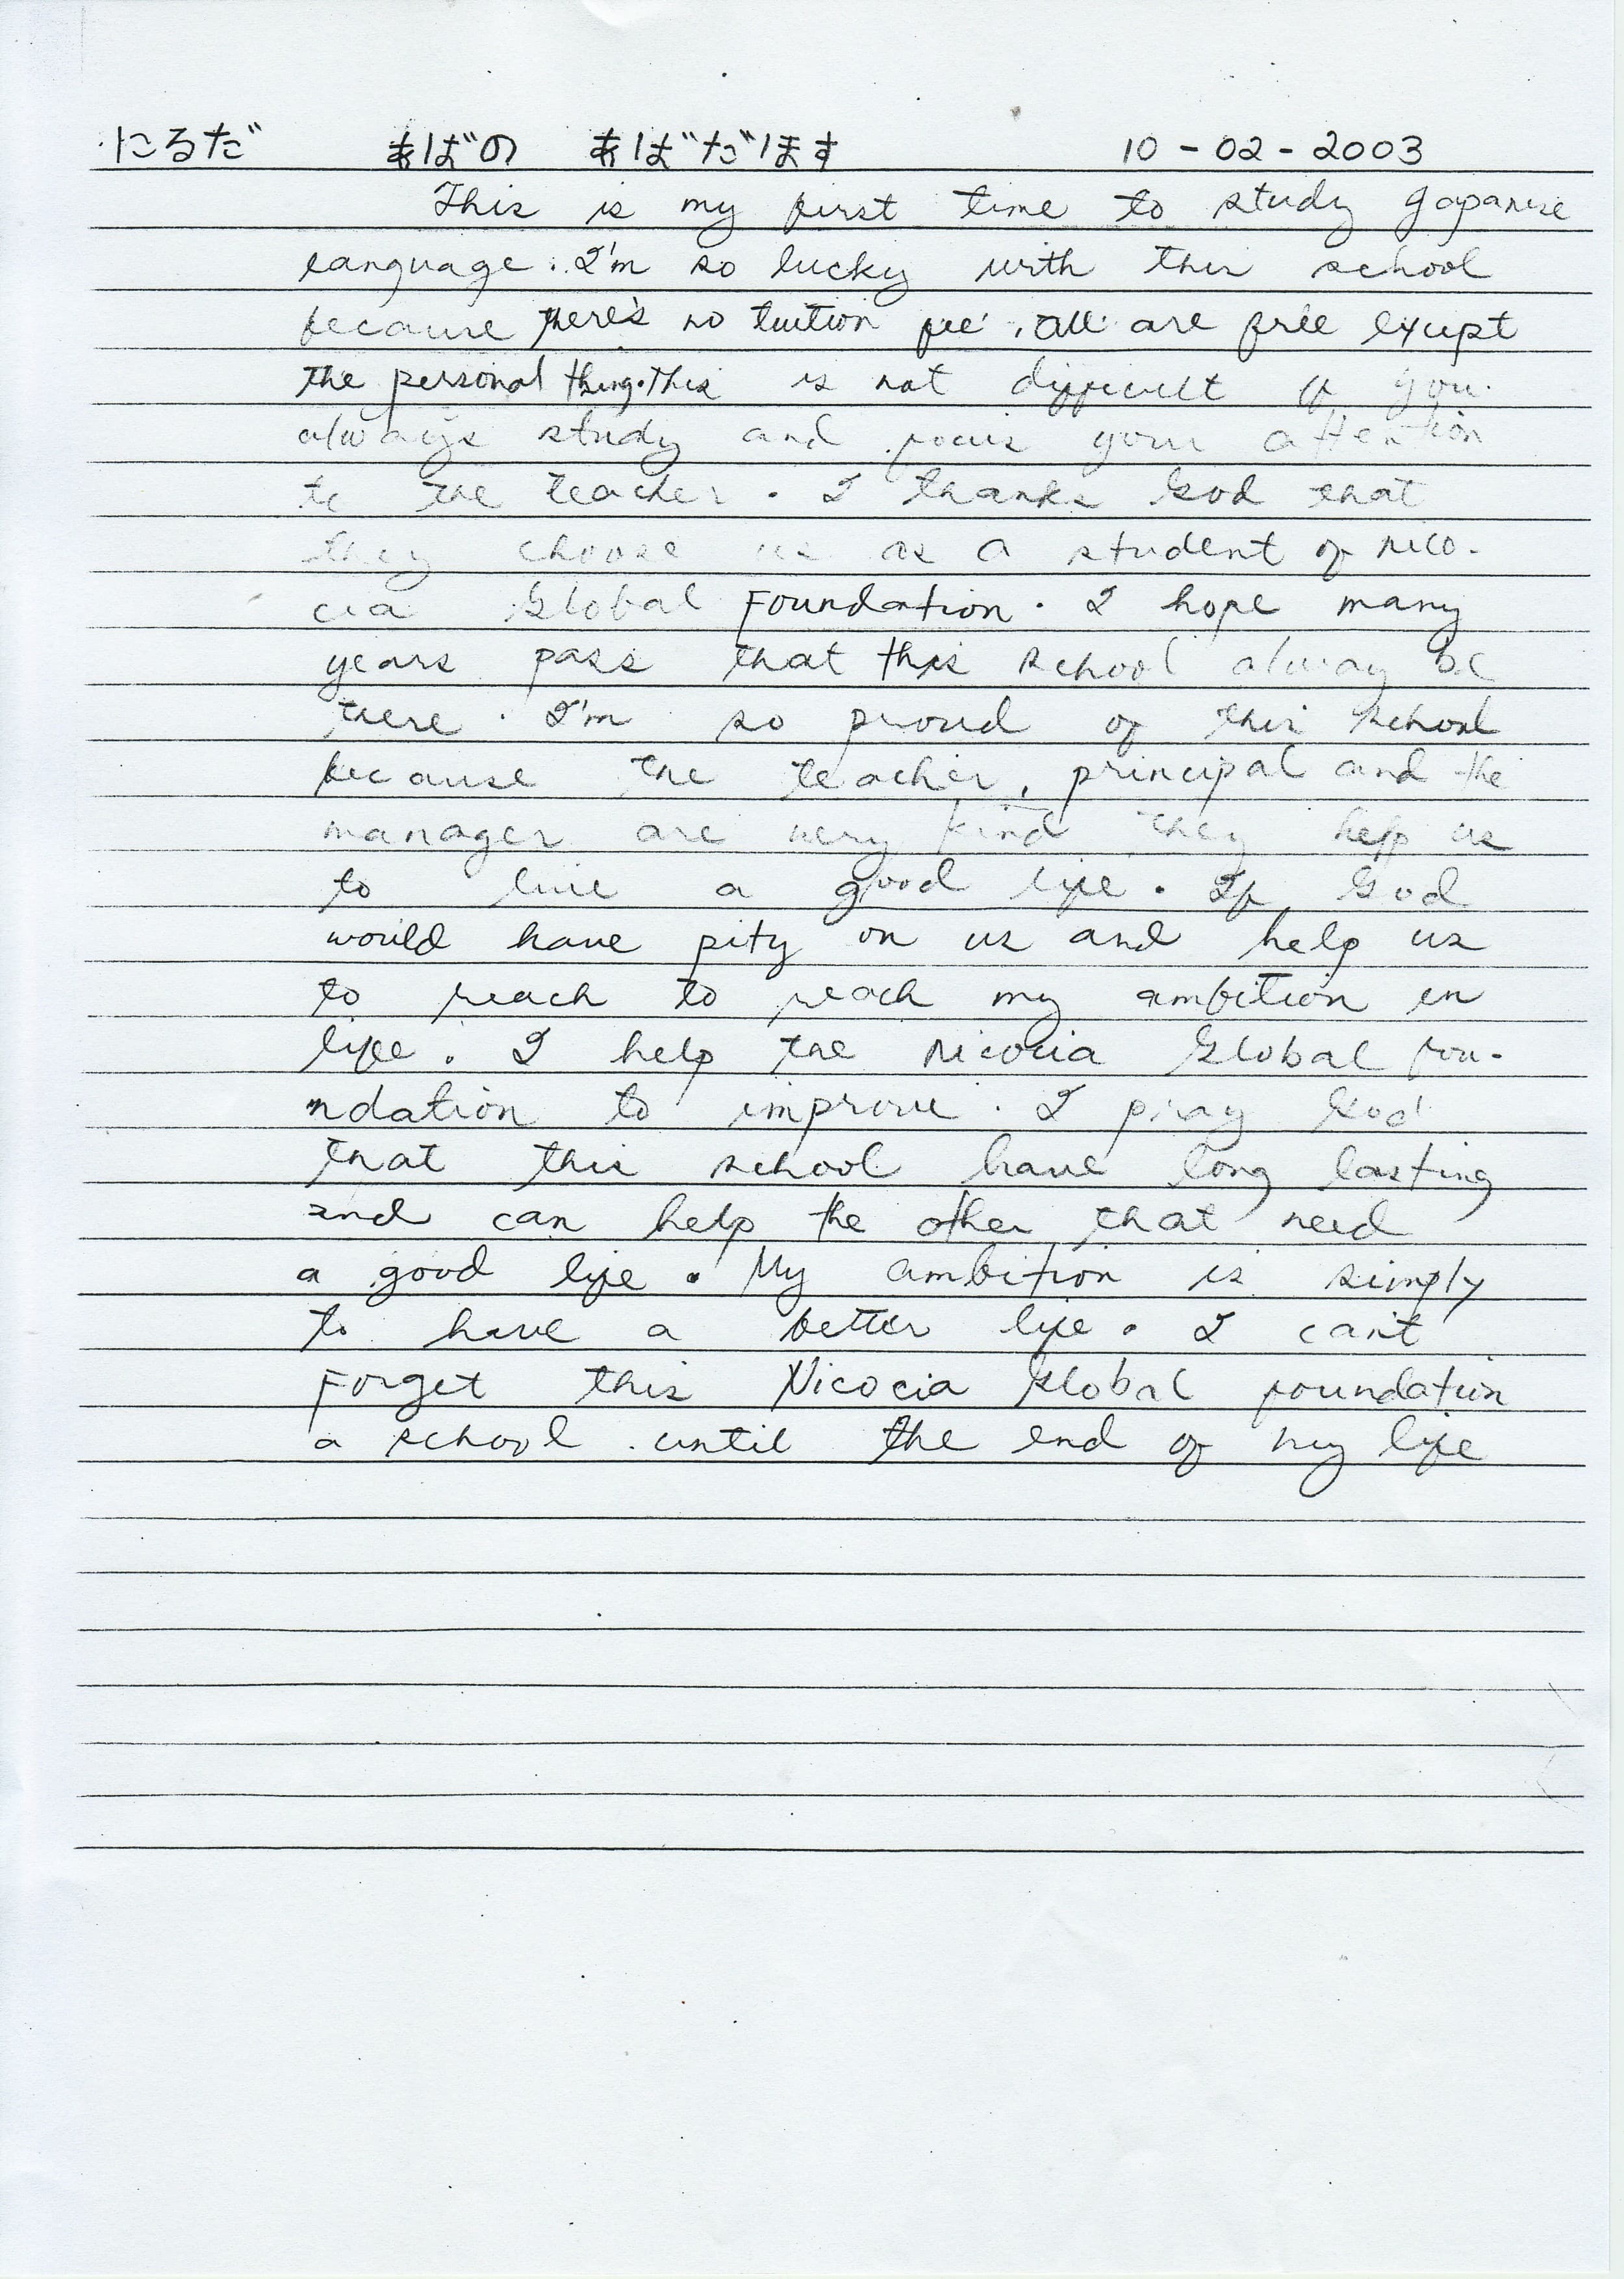 にるだ あばの あばだほす 10-02-2003
This is my first time to study Japanese
language. I'm so lucky with this school
because there's no tuition fee. All are free exept
the personal thing. This is not difficult if you
always study and focus your attention
to the teacher. I thanks God that
they choose us as a student of Nico-
cia Global Foundation. I hope many
years pass that this school alway be
there. I'm so proud of this school
because the teacher, principal and the
manager are very kind they help us
to live a good life. If God
would have pity on us and help us
to reach to reach my ambition in
life. I help the Nicocia Global fou-
ndation to improve. I pray God
that this school have long lasting
and can help the other that need
a good life. My ambition is simply
to have a better life. I can't
Forget this Nicocia Global foundation
a school until the end of my life